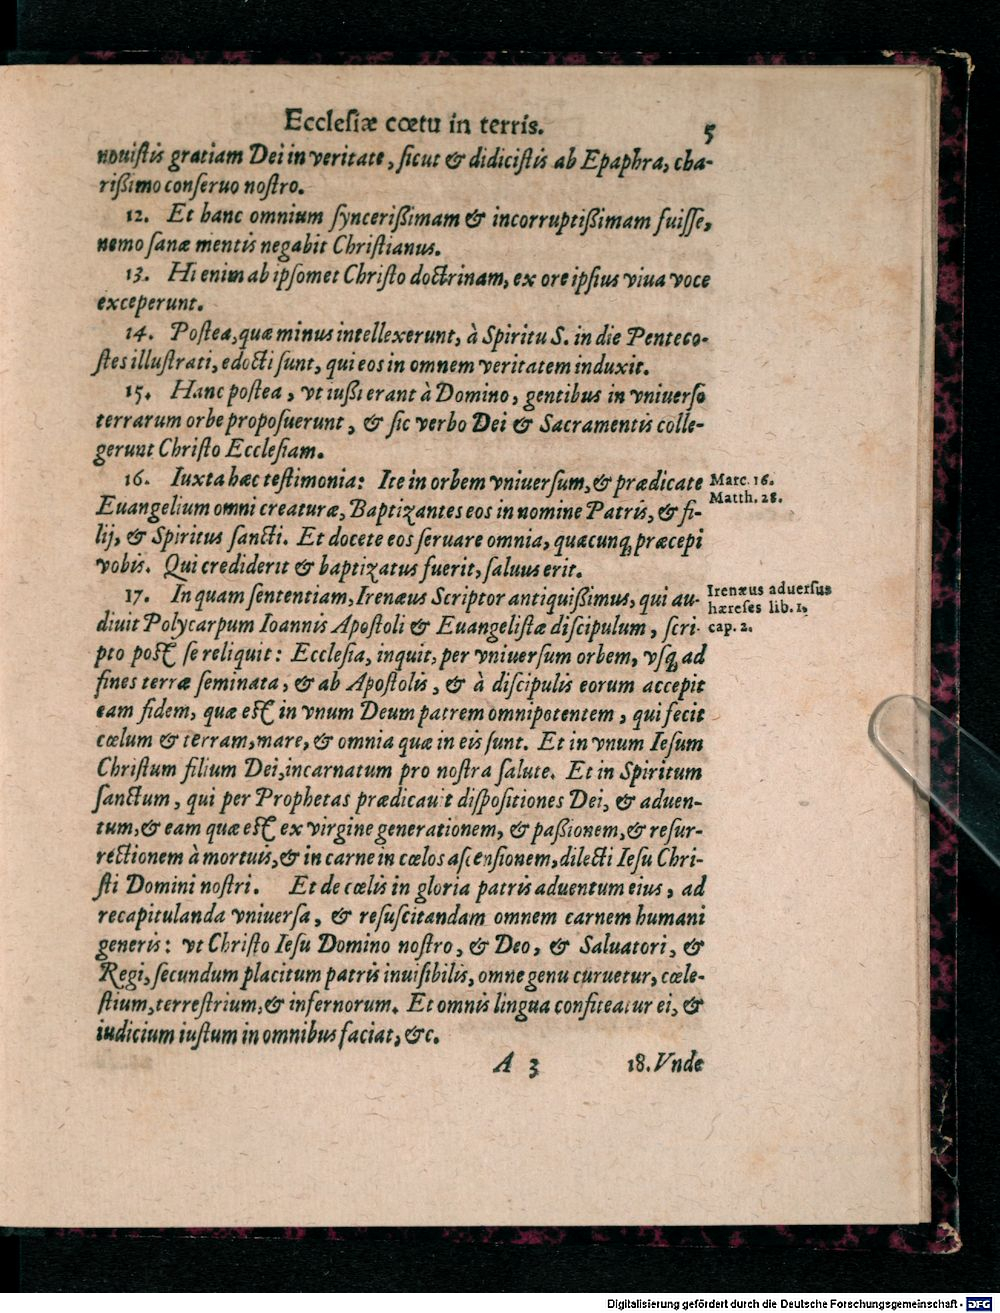 Ecclesiæ cœtu in terris. 5
nouistis gratiam Dei in veritate, sicut & didicistis ab Epaphra, cha-
rißimo conseruo nostro.
12. Et hanc omnium syncerißimam & incorruptißimam fuisse,
nemo sanæ mentis negabit Christianus.
13. Hi enim ab ipsomet Christo doctrinam, ex ore ipsius viua voce
exceperunt.
14. Postea, quæ minus intellexerunt, à Spiritu S. in die Penteco-
stes illustrati, edocti sunt, qui eos in omnem veritatem induxit.
15. Hanc postea, vt iußi erant à Domino, gentibus in vniuerso
terrarum orbe proposuerunt, & sic verbo Dei & Sacramentis colle-
gerunt Christo Ecclesiam.
16. Iuxta hæc testimonia: Ite in orbem vniuersum, & prædicate
Marc. 16.
Matth. 28.
Euangelium omni creaturæ, Baptizantes eos in nomine Patris, & fi-
lij, & Spiritus sancti. Et docete eos seruare omnia, quæcunq; præcepi
vobis. Qui crediderit & baptizatus fuerit, saluus erit.
17. In quam sententiam, Irenæus Scriptor antiquißimus, qui au-
Irenæus aduersus
hæreses lib. 1,
cap. 2.
diuit Polycarpum Ioannis Apostoli & Euangelistæ discipulum, scri-
pto post se reliquit: Ecclesia, inquit, per vniuersum orbem, vsq; ad
fines terræ seminata, & ab Apostolis, & à discipulis eorum accepit
eam fidem, quæ est in vnum Deum patrem omnipotentem, qui fecit
cœlum & terram, mare, & omnia quæ in eis sunt. Et in vnum Iesum
Christum filium Dei, incarnatum pro nostra salute. Et in Spiritum
sanctum, qui per Prophetas prædicauit dispositiones Dei, & aduen-
tum, & eam quæ est ex virgine generationem, & paßionem, & resur-
rectionem à mortuis, & in carne in cœlos ascensionem, dilecti Iesu Chri-
sti Domini nostri. Et de cœlis in gloria patris aduentum eius, ad
recapitulanda vniuersa, & resuscitandam omnem carnem humani
generis: vt Christo Iesu Domino nostro, & Deo, & Saluatori, &
Regi, secundum placitum patris inuisibilis, omne genu curuetur, cœle-
stium, terrestrium, & infernorum. Et omnis lingua confiteatur ei, &
iudicium iustum in omnibus faciat, &c.
A 3 18. Vnde
Digitalisierung gefördert durch die Deutsche Forschungsgemeinschaft - DFG